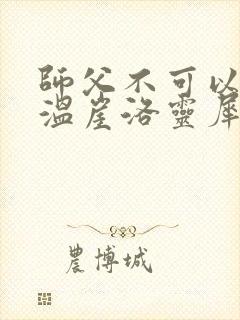 師父不可以
溫崖洛靈犀
農博城